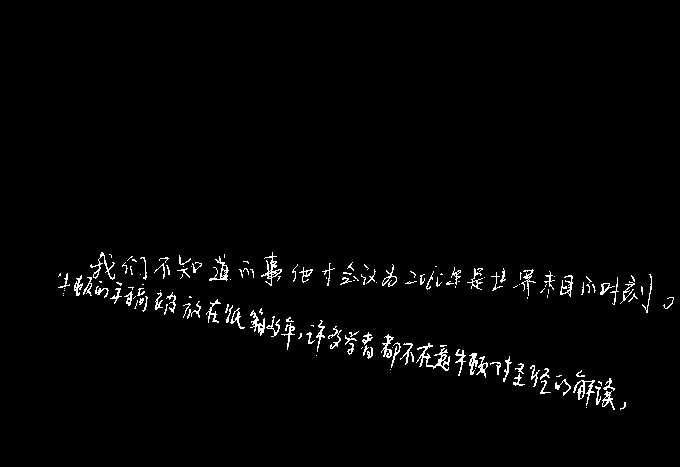 我们不知道的事他才会认为2060年是世界末日的时刻。
牛顿的手稿被放在纸箱多年,许多学者都不在意牛顿对圣经的解读,